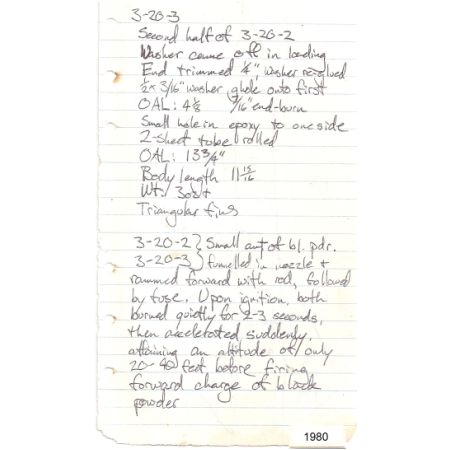 3-20-3
Second half of 3-20-2
Washer came off in loading
End trimmed 1/4" washer reglued
1/2 x 3/16" washer glued onto first
OAL: 4 1/8 7/16" end-burn
Small hole in epoxy to one side
2-sheet tube rolled
OAL: 13 3/4"
Body length 11 15/16
Wt. 3oz+
Triangular fins
3-20-2 } Small amt of bl. pdr.
3-20-3 } funnelled in nozzle +
rammed forward with rod, followed
by fuse. Upon ignition, both
burned quietly for 2-3 seconds,
then accelerated suddenly,
attaining an altitude of only
20-40 feet before firing
forward charge of black
powder
1980